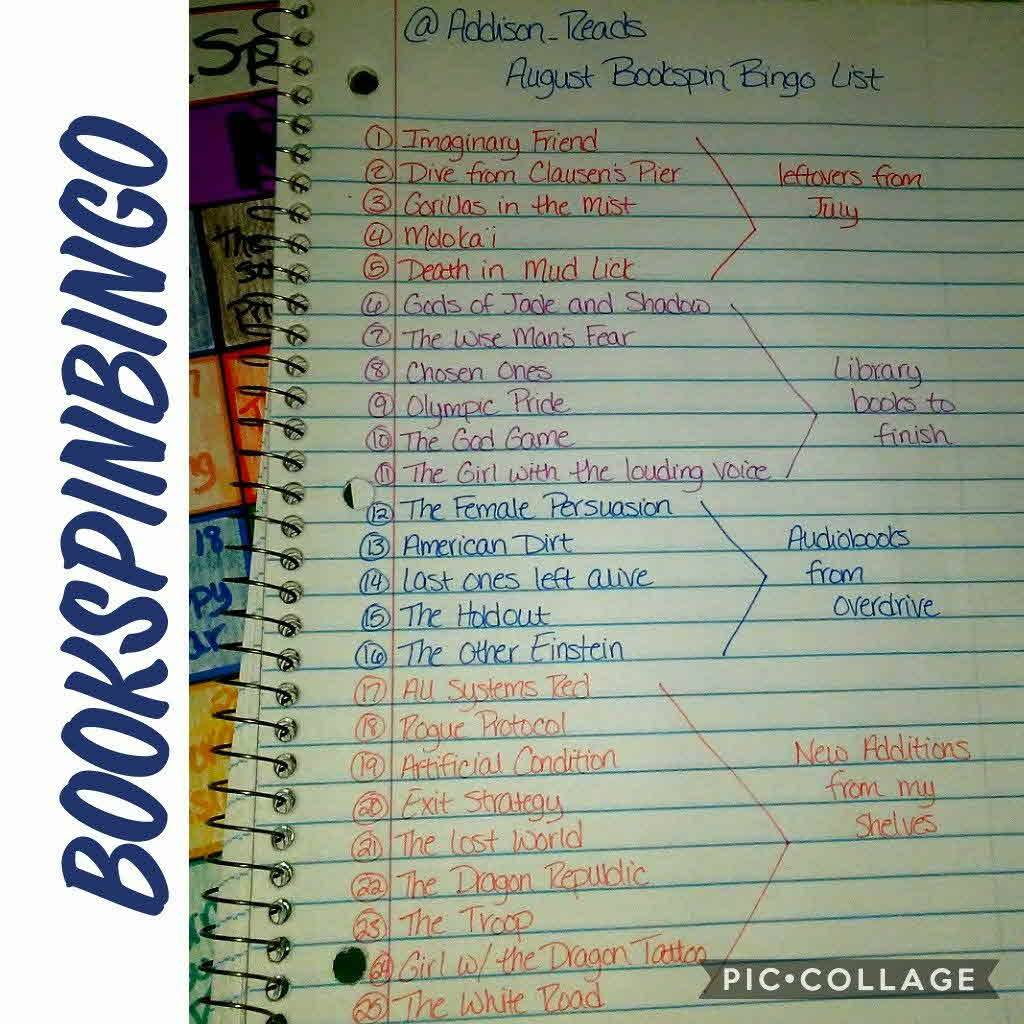 BOOKSPINBINGO
@Addison_Reads
August Bookspin Bingo List
1 Imaginary Friend
2 Dive from Clausen's Pier
3 Gorillas in the Mist
4 Moloka'i
5 Death in Mud Lick
leftovers from
July
6 Gods of Jade and Shadow
7 The Wise Man's Fear
8 Chosen Ones
9 Olympic Pride
10 The God Game
11 The Girl with the louding voice
Library
books to
finish
12 The Female Persuasion
13 American Dirt
14 Last ones left alive
15 The Holdout
16 The Other Einstein
Audiobooks
from
Overdrive
17 All Systems Red
18 Rogue Protocol
19 Artificial Condition
20 Exit Strategy
21 The Lost World
22 The Dragon Republic
23 The Troop
24 Girl w/ the Dragon Tattoo
25 The White Road
New Additions
from my
Shelves
18
PIC•COLLAGE